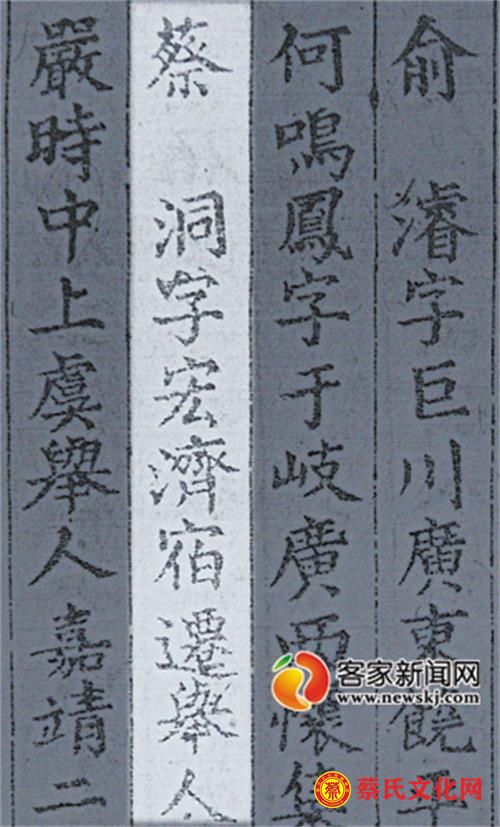 俞 濬字巨川廣東饒平
何鳴鳳字于岐廣西懷集
蔡 洞字宏濟宿遷舉人
嚴時中上虞舉人嘉靖二
客家新闻网
www.newskj.com
蔡氏文化网